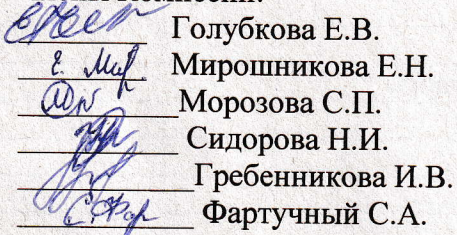 Голубкова Е.В.
Е. Мир. Мирошникова Е.Н.
Морозова С.П.
Сидорова Н.И.
Гребенникова И.В.
С.Фар Фартучный С.А.